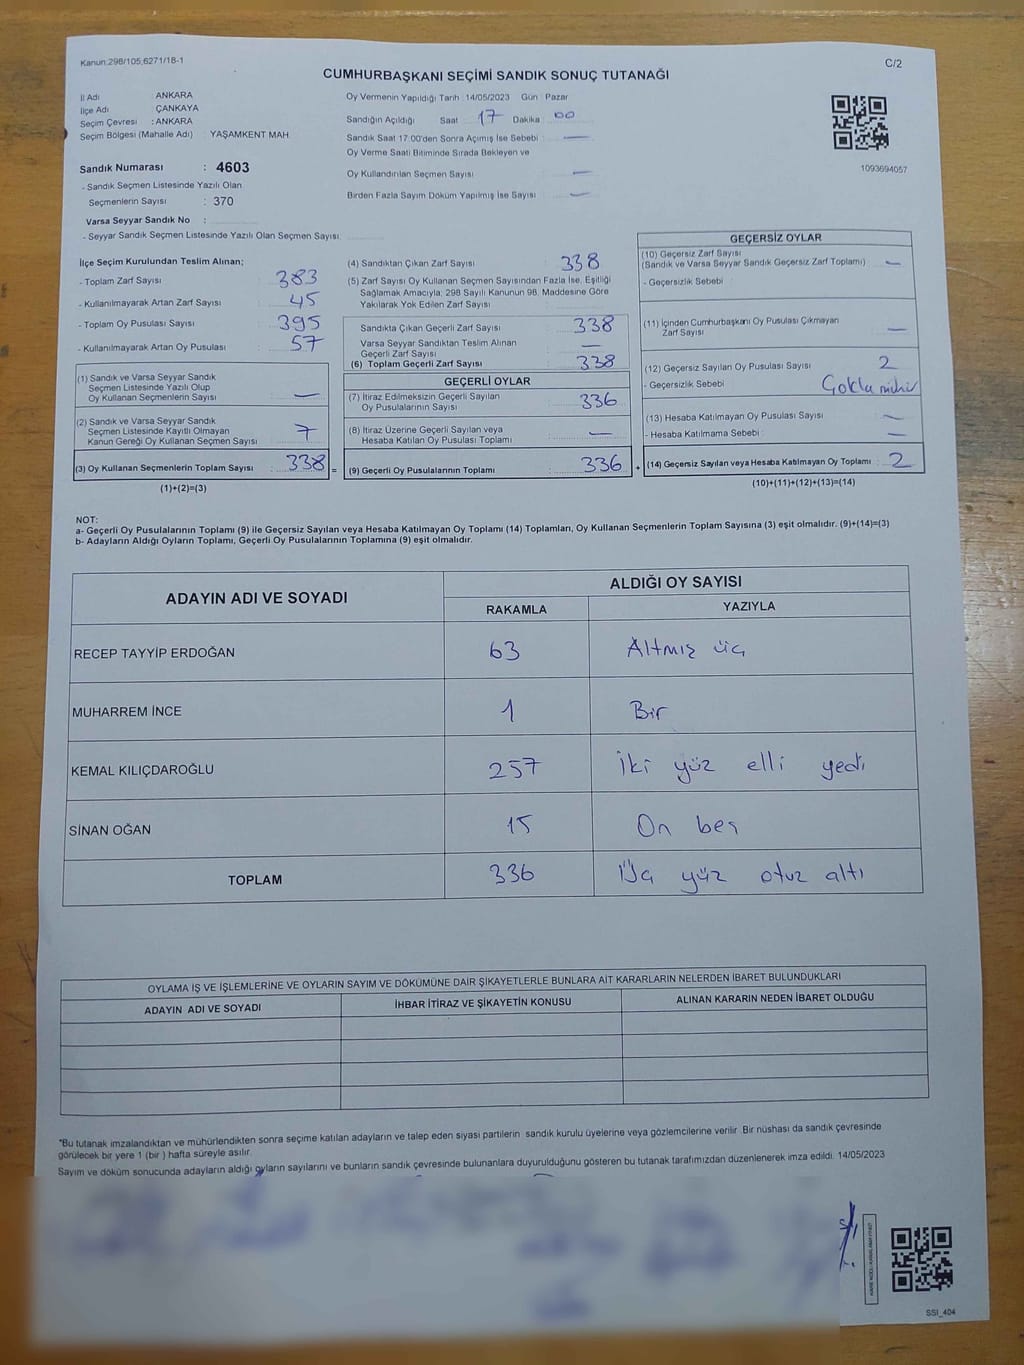 Kanun:298/105,6271/18-1
C/2
CUMHURBAŞKANI SEÇİMİ SANDIK SONUÇ TUTANAĞI
İl Adı ANKARA
İlçe Adı ÇANKAYA
Seçim Çevresi : ANKARA
Seçim Bölgesi (Mahalle Adı) : YAŞAMKENT MAH.
Sandık Numarası : 4603
- Sandık Seçmen Listesinde Yazılı Olan
Seçmenlerin Sayısı : 370
Varsa Seyyar Sandık No :
- Seyyar Sandık Seçmen Listesinde Yazılı Olan Seçmen Sayısı:
Oy Vermenin Yapıldığı Tarih : 14/05/2023 Gün : Pazar
Sandığın Açıldığı Saat 17 Dakika 00
Sandık Saat 17:00'den Sonra Açımış İse Sebebi : —
Oy Verme Saati Bitiminde Sırada Bekleyen ve
Oy Kullandırılan Seçmen Sayısı : —
Birden Fazla Sayım Döküm Yapılmış İse Sayısı : —
1093694057
İlçe Seçim Kurulundan Teslim Alınan;
- Toplam Zarf Sayısı : 383
- Kullanılmayarak Artan Zarf Sayısı : 45
- Toplam Oy Pusulası Sayısı : 395
- Kullanılmayarak Artan Oy Pusulası : 57
(1) Sandık ve Varsa Seyyar Sandık
Seçmen Listesinde Yazılı Olup
Oy Kullanan Seçmenlerin Sayısı : —
(2) Sandık ve Varsa Seyyar Sandık
Seçmen Listesinde Kayıtlı Olmayan
Kanun Gereği Oy Kullanan Seçmen Sayısı : 7
(3) Oy Kullanan Seçmenlerin Toplam Sayısı : 338 =
(1)+(2)=(3)
(4) Sandıktan Çıkan Zarf Sayısı : 338
(5) Zarf Sayısı Oy Kullanan Seçmen Sayısından Fazla İse, Eşitliği
Sağlamak Amacıyla; 298 Sayılı Kanunun 98. Maddesine Göre
Yakılarak Yok Edilen Zarf Sayısı :
Sandıkta Çıkan Geçerli Zarf Sayısı : 338
Varsa Seyyar Sandıktan Teslim Alınan
Geçerli Zarf Sayısı : —
(6) Toplam Geçerli Zarf Sayısı : 338
GEÇERLİ OYLAR
(7) İtiraz Edilmeksizin Geçerli Sayılan
Oy Pusulalarının Sayısı : 336
(8) İtiraz Üzerine Geçerli Sayılan veya
Hesaba Katılan Oy Pusulası Toplamı : —
(9) Geçerli Oy Pusulalarının Toplamı : 336 +
GEÇERSİZ OYLAR
(10) Geçersiz Zarf Sayısı
(Sandık ve Varsa Seyyar Sandık Geçersiz Zarf Toplamı) : —
- Geçersizlik Sebebi :
(11) İçinden Cumhurbaşkanı Oy Pusulası Çıkmayan
Zarf Sayısı : —
(12) Geçersiz Sayılan Oy Pusulası Sayısı : 2
- Geçersizlik Sebebi :
(13) Hesaba Katılmayan Oy Pusulası Sayısı : —
- Hesaba Katılmama Sebebi : —
(14) Geçersiz Sayılan veya Hesaba Katılmayan Oy Toplamı : 2
(10)+(11)+(12)+(13)=(14)
NOT:
a- Geçerli Oy Pusulalarının Toplamı (9) ile Geçersiz Sayılan veya Hesaba Katılmayan Oy Toplamı (14) Toplamları, Oy Kullanan Seçmenlerin Toplam Sayısına (3) eşit olmalıdır. (9)+(14)=(3)
b- Adayların Aldığı Oyların Toplamı, Geçerli Oy Pusulalarının Toplamına (9) eşit olmalıdır.
ADAYIN ADI VE SOYADI
ALDIĞI OY SAYISI
RAKAMLA YAZIYLA
RECEP TAYYİP ERDOĞAN 63 Altmış üç
MUHARREM İNCE 1 Bir
KEMAL KILIÇDAROĞLU 257 İki yüz elli yedi
SİNAN OĞAN 15 On beş
TOPLAM 336 Üç yüz otuz altı
OYLAMA İŞ VE İŞLEMLERİNE VE OYLARIN SAYIM VE DÖKÜMÜNE DAİR ŞİKAYETLERLE BUNLARA AİT KARARLARIN NELERDEN İBARET BULUNDUKLARI
ADAYIN ADI VE SOYADI İHBAR İTİRAZ VE ŞİKAYETİN KONUSU ALINAN KARARIN NEDEN İBARET OLDUĞU
*Bu tutanak imzalandıktan ve mühürlendikten sonra seçime katılan adayların ve talep eden siyasi partilerin sandık kurulu üyelerine veya gözlemcilerine verilir. Bir nüshası da sandık çevresinde
görülecek bir yere 1 (bir ) hafta süreyle asılır.
Sayım ve döküm sonucunda adayların aldığı oyların sayılarını ve bunların sandık çevresinde bulunanlara duyurulduğunu gösteren bu tutanak tarafımızdan düzenlenerek imza edildi. 14/05/2023
SSI_404